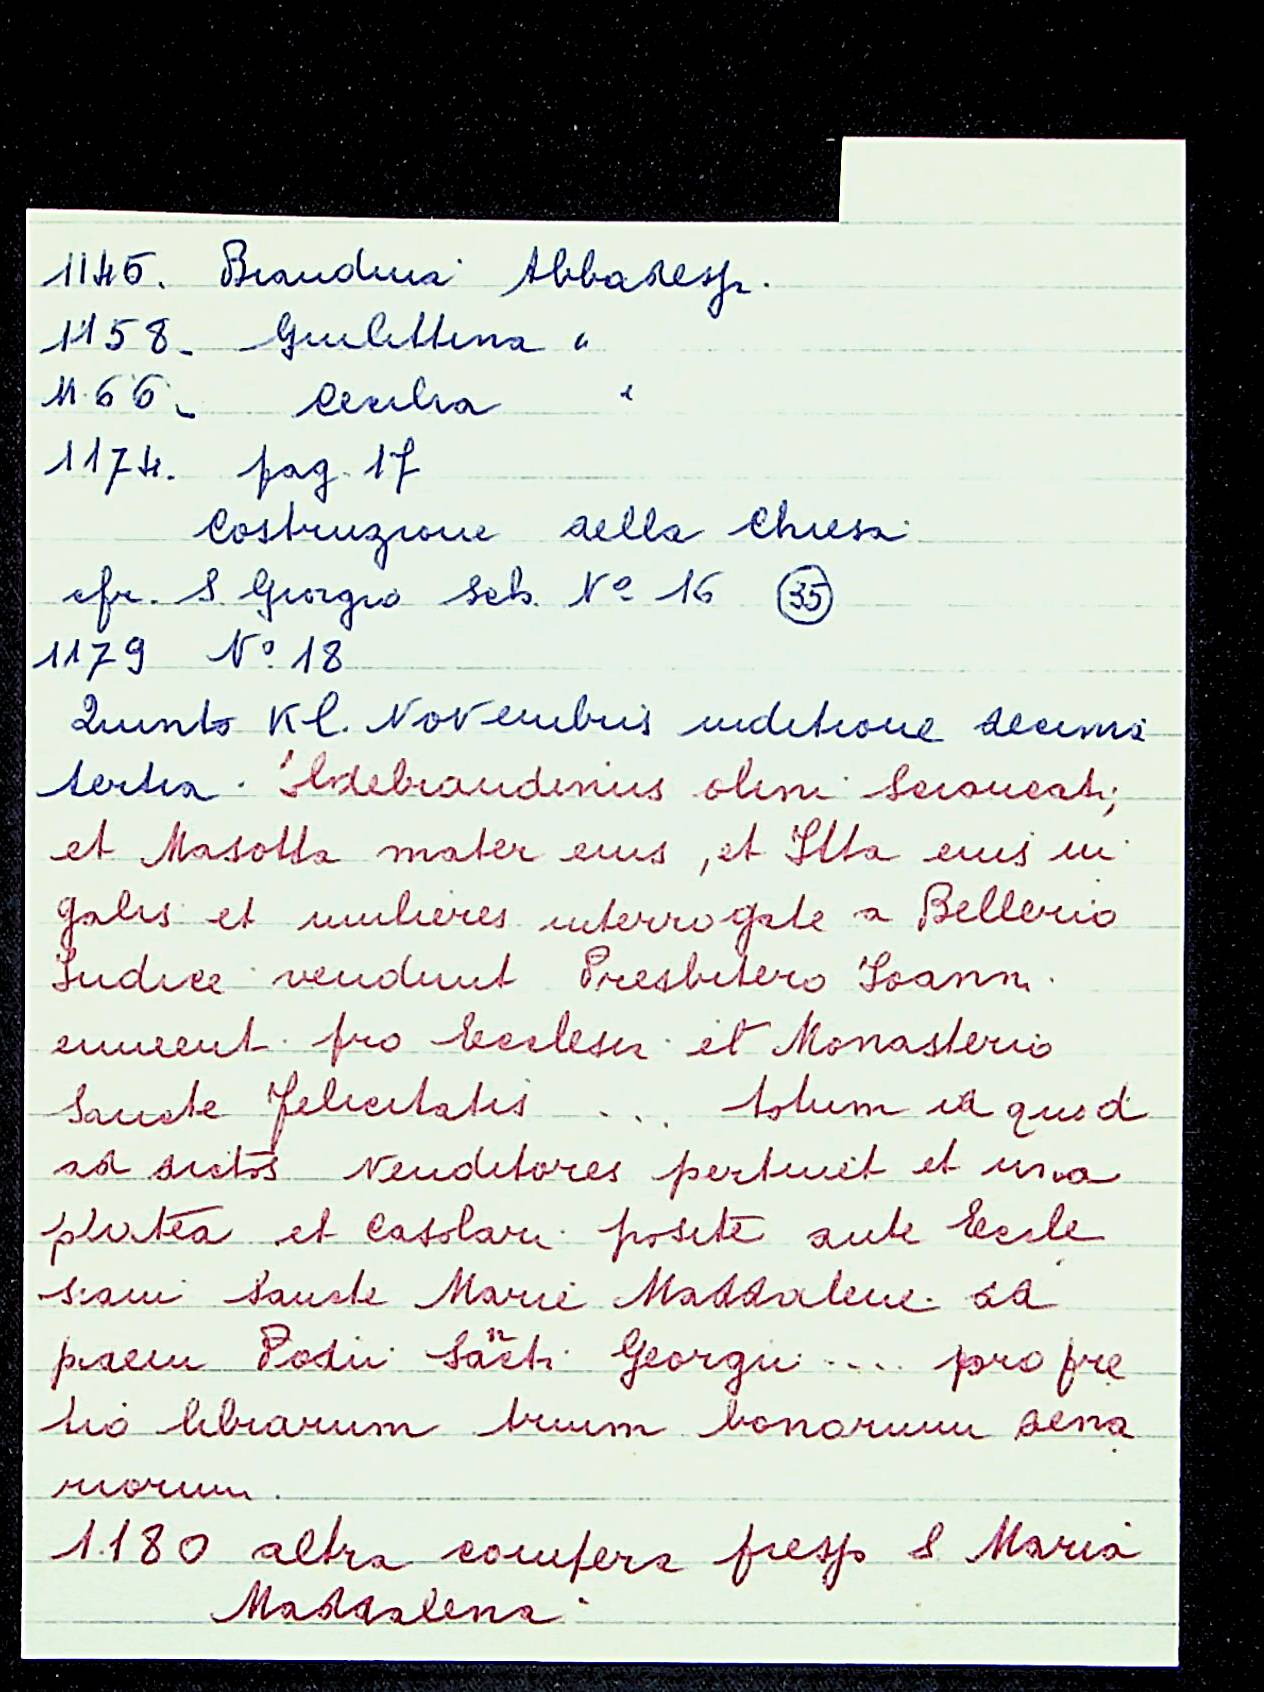 1145. Brandina Abbadess.
1158. Giulittina "
1166. Cecilia "
1174. pag. 17
Costruzione della Chiesa
cfr. S. Giorgio Sch. Nº 16 (35)
1179 Nº 18
Quinto Kl. Novembris inditione decima
tertia. Ildebrandinus olim
et Masotta mater eius, et Itta eius iu
galis et mulieres interrogate a Bellerio
Iudice vendunt Presbitero Ioanni
ement pro Ecclesia et Monasterio
Sancte Felicitatis ... totum id quod
ad dictos Venditores pertinet et una
platea et Casolari posite ante Eccle
siam Sancte Marie Maddalene ad
pedem Podii Sancti Georgii .... pro pre
tio librarum trium bonorum dena
riorum.
1180 altra compera presso S. Maria
Maddalena